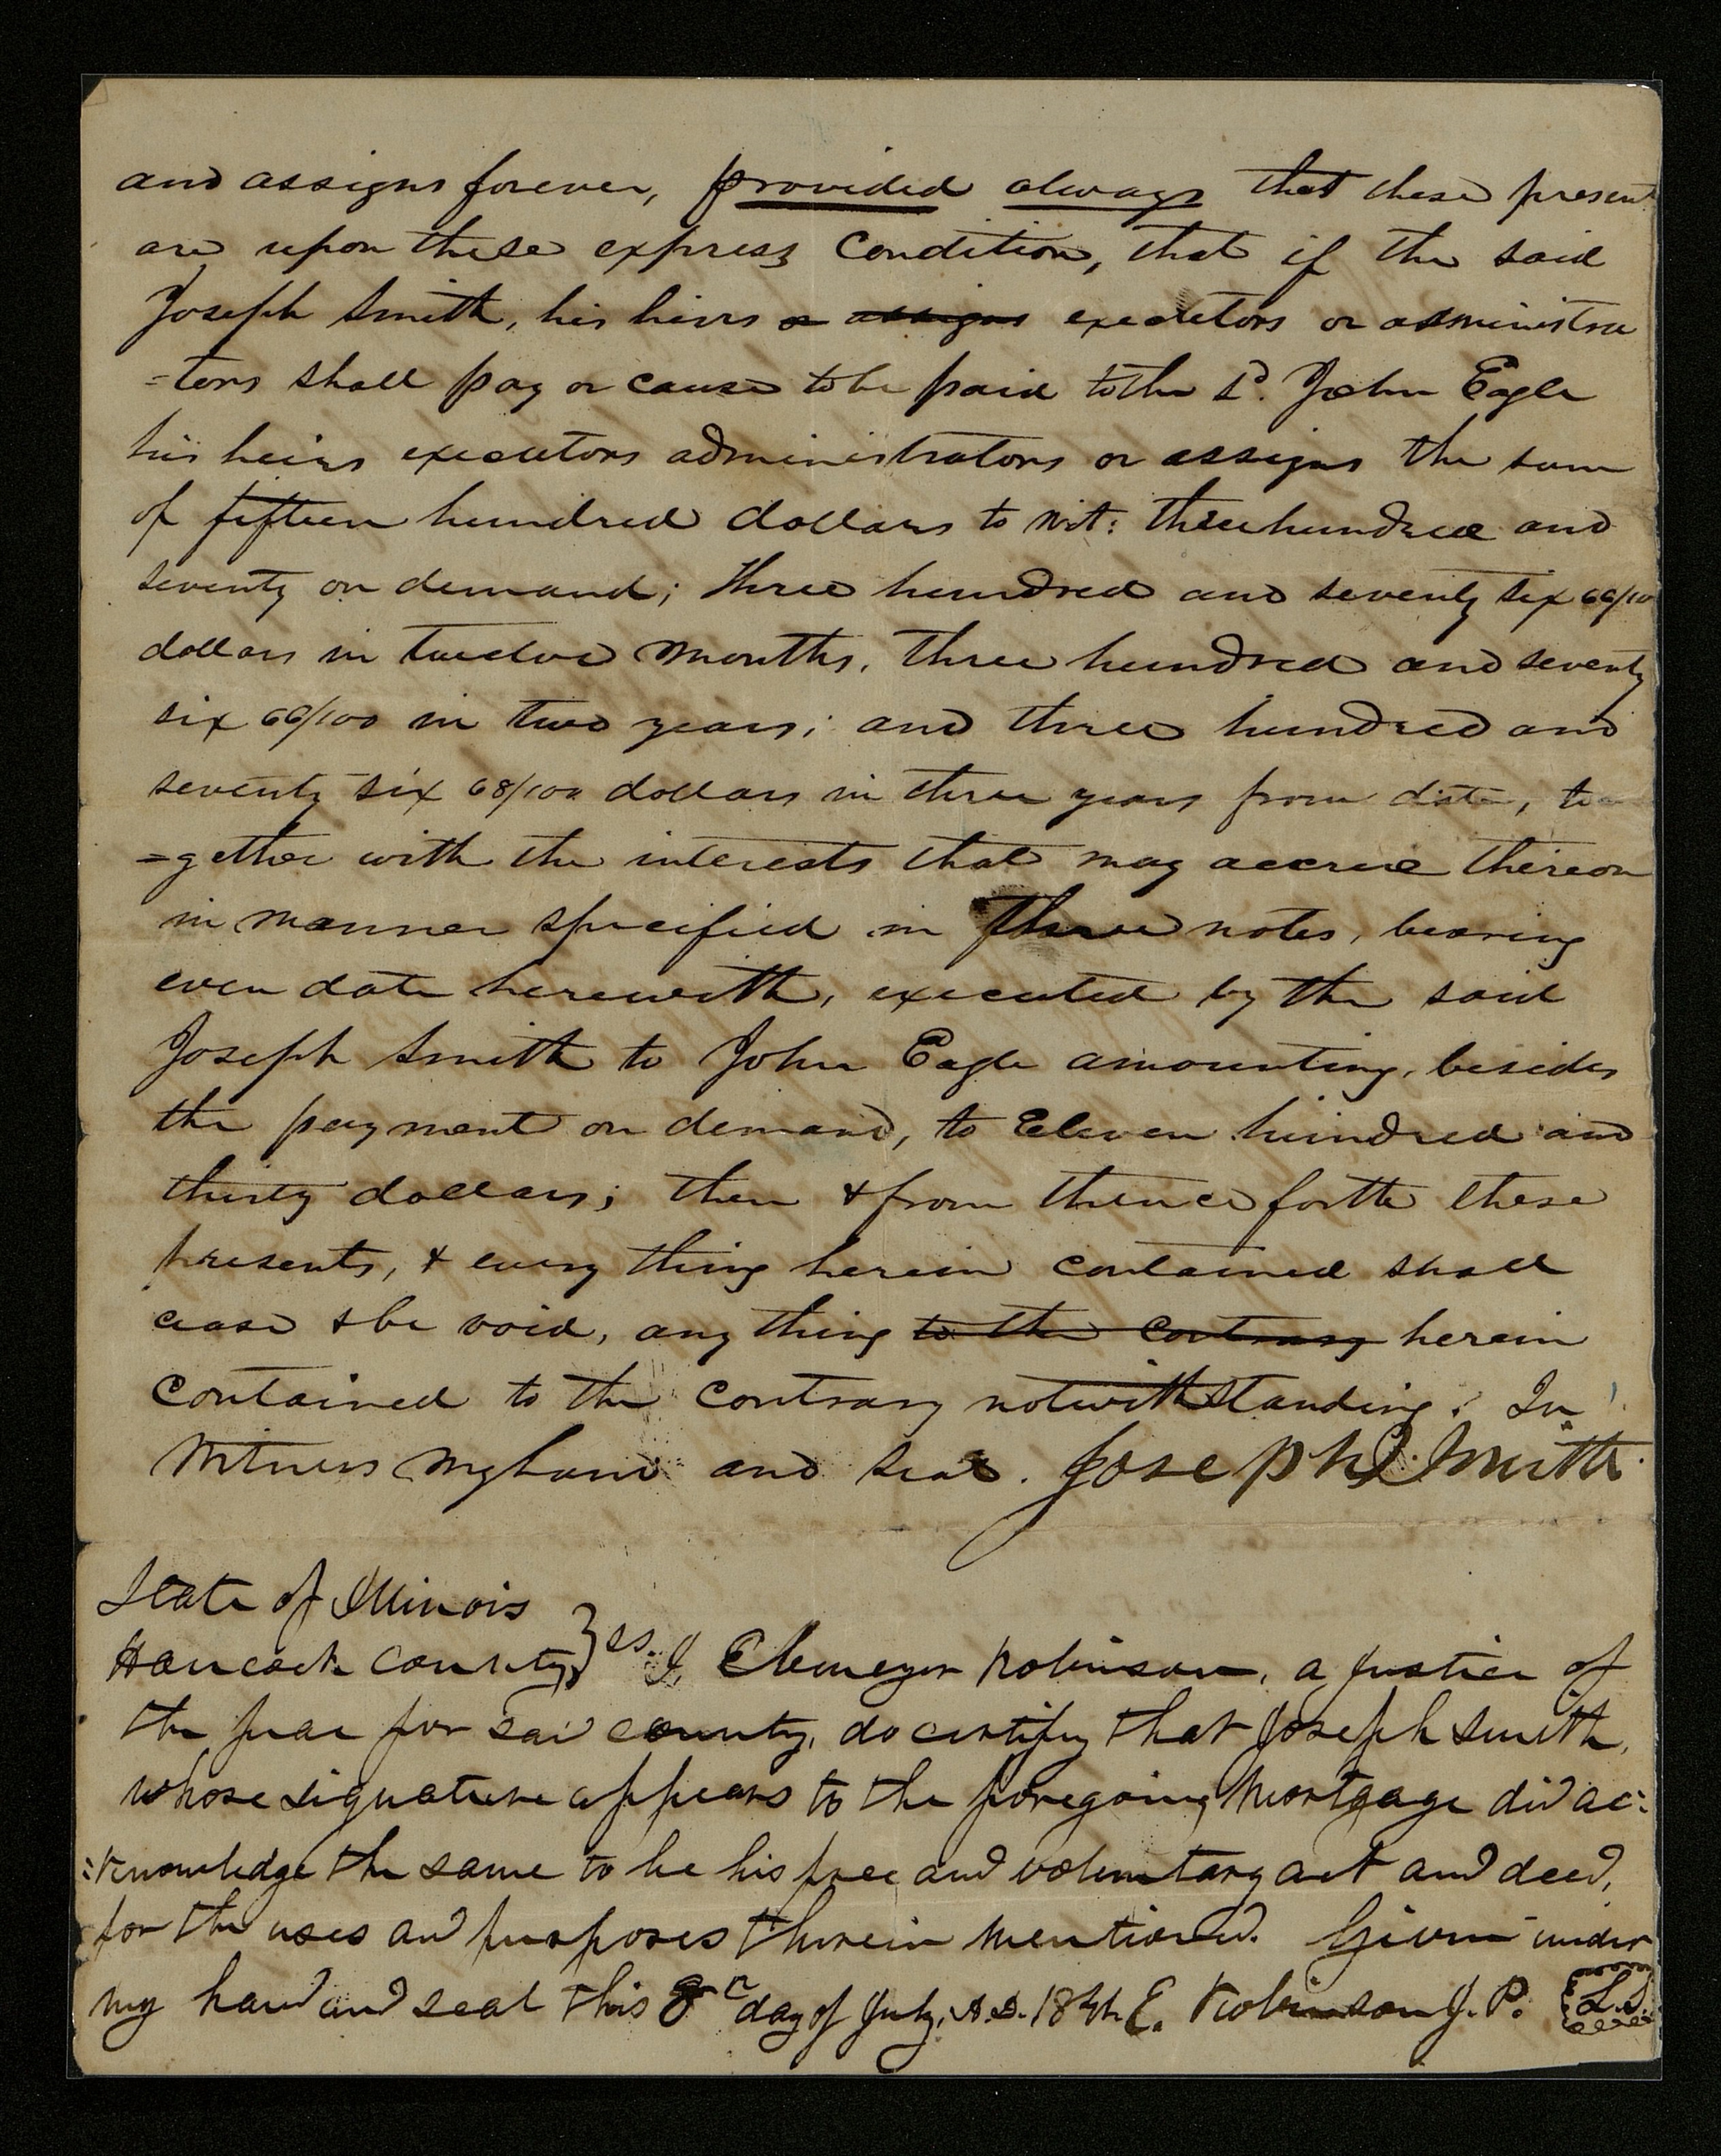 and assigns forever, provided always that these present
are upon these express Condition, that if the said
Joseph Smith, his heirs or assigns executors or administra
=tors shall pay or cause to be paid to the sd. John Eagle
his heirs executors administrators or assigns the sum
of fifteen hundred dollars to wit: three hundred and
seventy on demand; three hundred and seventy six 66/100
dollars in twelve months, three hundred and seventy
six 66/100 in two years; and three hundred and
seventy six 68/100 dollars in three years from date, to
=gether with the interests that may accrue thereon
in manner specified in three notes, bearing
even date herewith, executed by the said
Joseph Smith to John Eagle amounting, besides
the payment on demand, to Eleven hundred and
thirty dollars; then & from thence forth these
presents, & every thing herein contained shall
cease & be void, any thing to the contrary herein
contained to the contrary notwithstanding. In
Witness my hand and seal. Joseph Smith
State of Illinois
Hancock County } ss. I, Ebenezer Robinson, a justice of
the peace for said county, do certify that Joseph Smith,
whose signature appears to the foregoing Mortgage did ac=
=knowledge the same to be his free and voluntary act and deed,
for the uses and purposes therein mentioned. Given under
my hand and seal this day of July, A.D. E. Robinson J.P. {L.S.